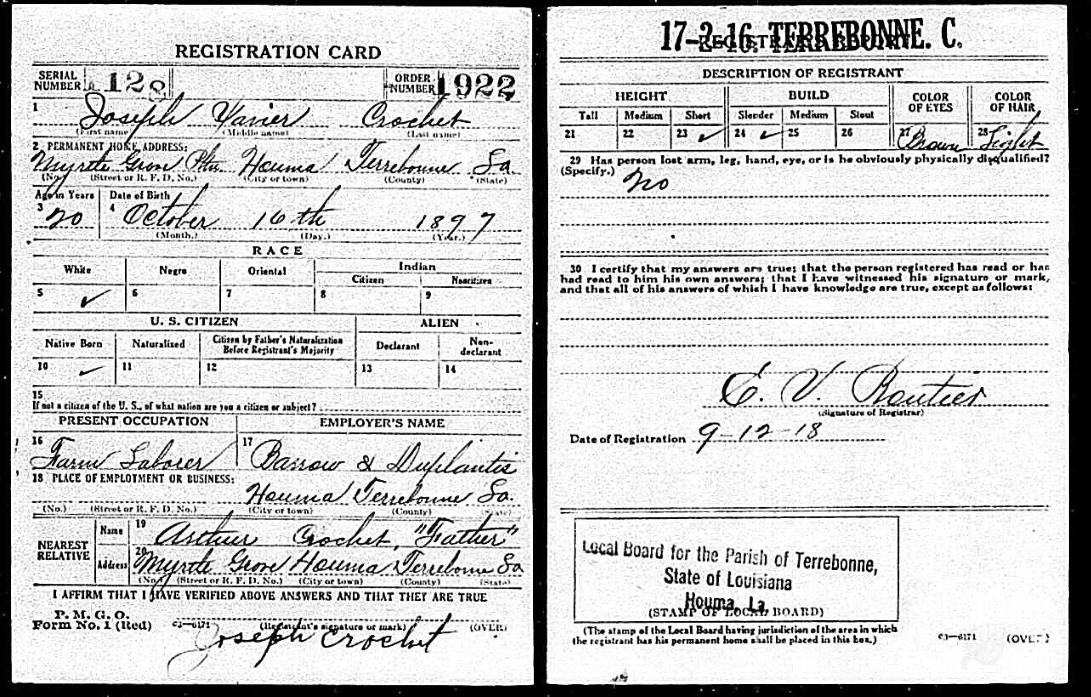 REGISTRATION CARD
SERIAL NUMBER 128 ORDER NUMBER 1922
1 Joseph Xavier Crochet
(First name) (Middle name) (Last name)
2 PERMANENT HOME ADDRESS:
Myrtle Grove Pltn. Houma Terrebonne La.
(No.) (Street or R. F. D. No.) (City or town) (County) (State)
Age in Years Date of Birth
3 20 4 October 16th 1897
(Month.) (Day.) (Year.)
RACE
White Negro Oriental Indian
Citizen Noncitizen
5 ✓ 6 7 8 9
U. S. CITIZEN ALIEN
Native Born Naturalized Citizen by Father's Naturalization Before Registrant's Majority Declarant Non-declarant
10 ✓ 11 12 13 14
15
If not a citizen of the U. S., of what nation are you a citizen or subject?
PRESENT OCCUPATION EMPLOYER'S NAME
16 Farm Laborer 17 Barrow & Duplantis
18 PLACE OF EMPLOYMENT OR BUSINESS:
Houma Terrebonne La.
(No.) (Street or R. F. D. No.) (City or town) (County) (State)
NEAREST RELATIVE
Name 19 Arthur Crochet, "Father"
Address 20 Myrtle Grove Houma Terrebonne La
(No.) (Street or R. F. D. No.) (City or town) (County) (State)
I AFFIRM THAT I HAVE VERIFIED ABOVE ANSWERS AND THAT THEY ARE TRUE
P. M. G. O.
Form No. 1 (Red) C3—6171 (Registrant's signature or mark) (OVER)
Joseph Crochet
17-2-16. TERREBONNE. C.
REGISTRAR'S REPORT
DESCRIPTION OF REGISTRANT
HEIGHT BUILD COLOR OF EYES COLOR OF HAIR
Tall Medium Short Slender Medium Stout
21 22 23 ✓ 24 ✓ 25 26 27 Brown 28 Light
29 Has person lost arm, leg, hand, eye, or is he obviously physically disqualified?
(Specify.) No
30 I certify that my answers are true; that the person registered has read or has
had read to him his own answers; that I have witnessed his signature or mark,
and that all of his answers of which I have knowledge are true, except as follows:
(Signature of Registrar)
Date of Registration 9-12-18
Local Board for the Parish of Terrebonne,
State of Louisiana
Houma, La.
(STAMP OF LOCAL BOARD)
(The stamp of the Local Board having jurisdiction of the area in which
the registrant has his permanent home shall be placed in this box.)
C3—6171 (OVER)